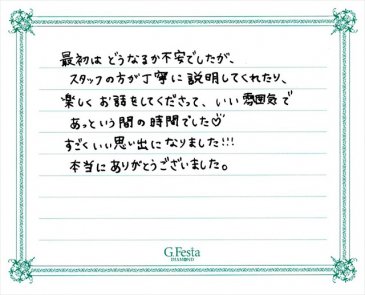 最初は どうなるか不安でしたが、
スタッフの方が丁寧に説明してくれたり、
楽しくお話をしてくださって、いい雰囲気で
あっという間の時間でした♡
すごくいい思い出になりました!!!
本当にありがとうございました。
G.Festa
DIAMOND